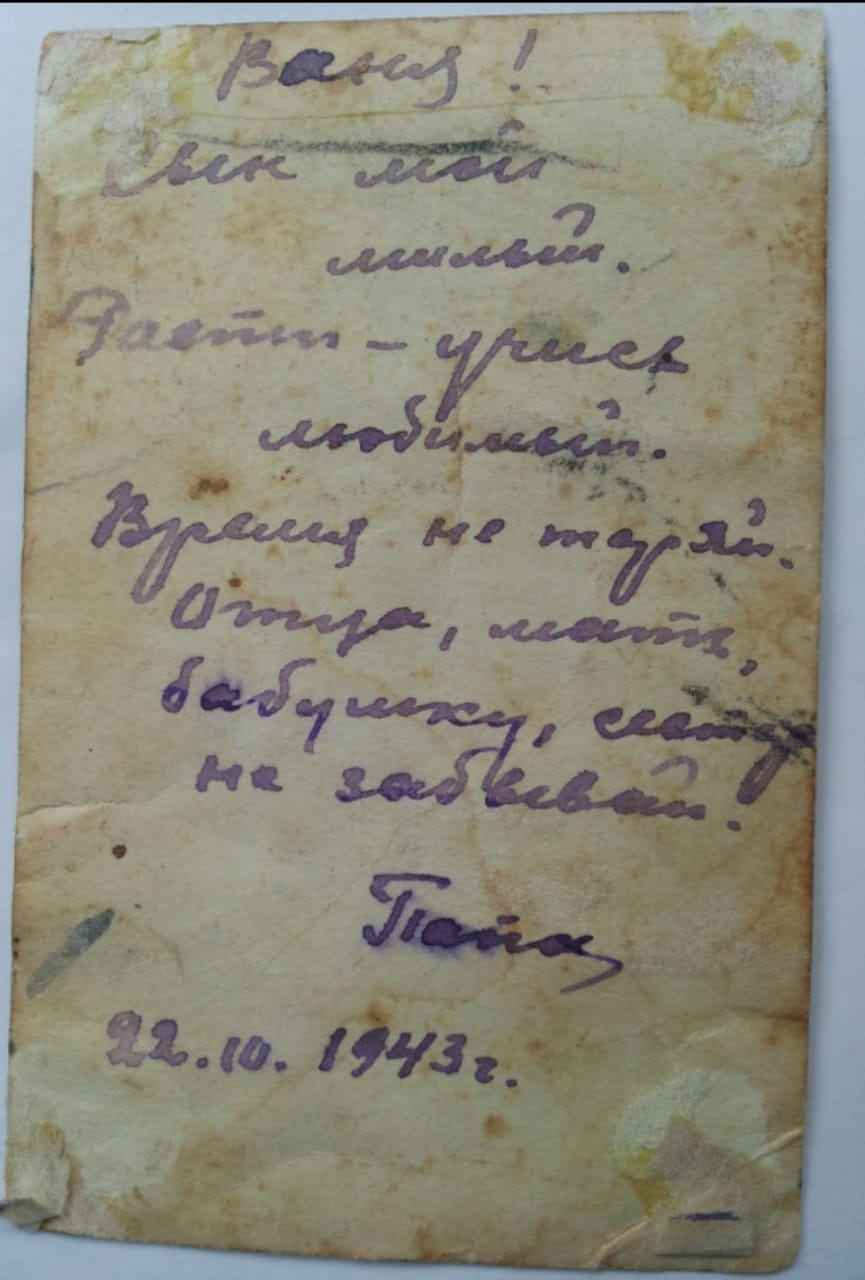 Ваня!
Сын мой
милый.
Расти - учись
любимый.
Время не теряй.
Отца, мать,
бабушку, сестру
не забывай.
Папа
22.10.1943г.